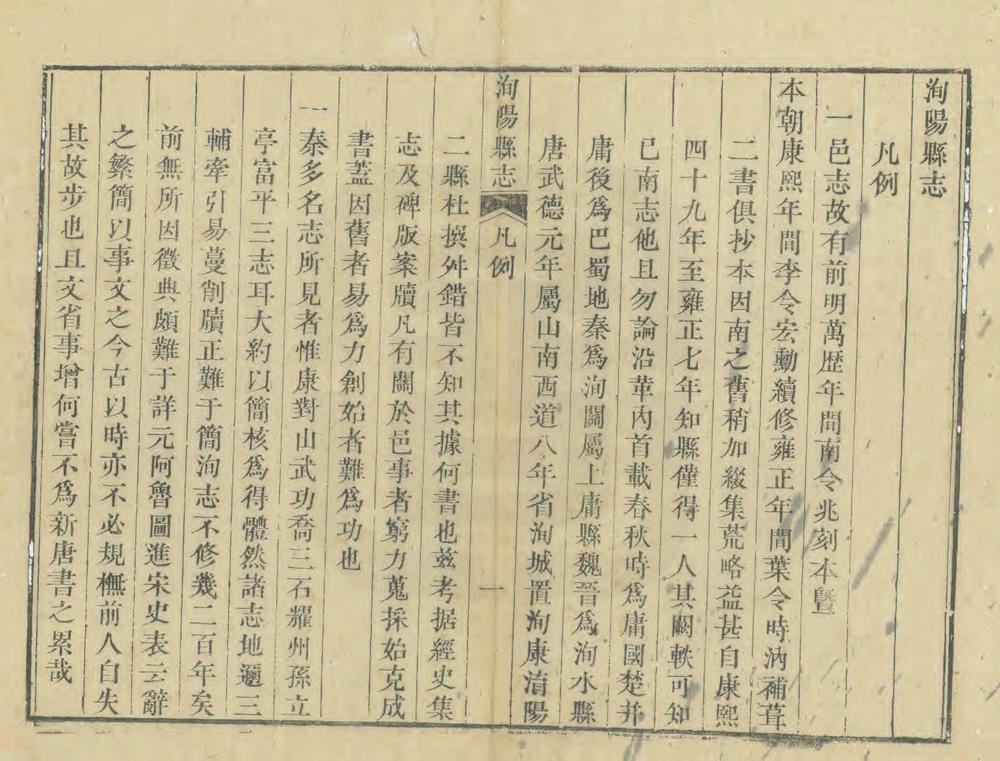 洵陽縣志
凡例
一邑志故有前明萬歷年間南令兆刻本暨
本朝康熙年間李令宏勳續修雍正年間葉令時汭補葺
二書俱抄本因南之舊稍加綴集荒略益甚自康熙
四十九年至雍正七年知縣僅得一人其闕軼可知
已南志他且勿論沿革內首載春秋時爲庸國楚并
庸後爲巴蜀地秦爲洵關屬上庸縣魏晉爲洵水縣
唐武德元年屬山南西道八年省洵城置洵康淯陽
洵陽縣志 凡例 一
二縣杜撰舛錯皆不知其據何書也茲考据經史集
志及碑版案牘凡有關於邑事者窮力蒐採始克成
書蓋因舊者易爲力創始者難爲功也
一秦多名志所見者惟康對山武功喬三石耀州孫立
亭富平三志耳大約以簡核爲得體然諸志地邇三
輔牽引易蔓削牘正難于簡洵志不修幾二百年矣
前無所因徵典頗難于詳元阿魯圖進宋史表云辭
之繁簡以事文之今古以時亦不必規橅前人自失
其故步也且文省事增何嘗不爲新唐書之累哉